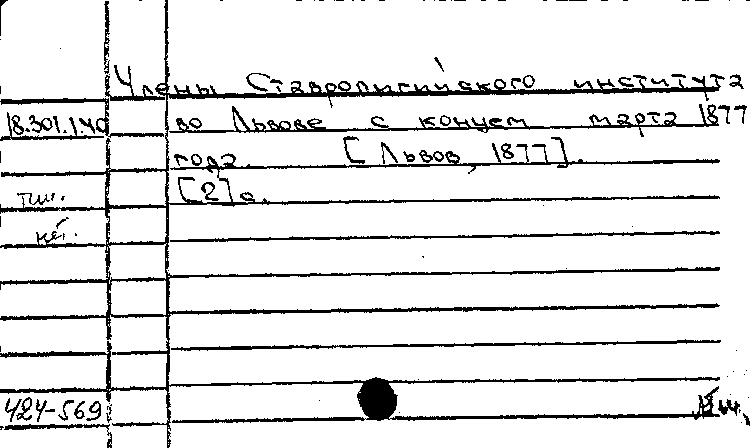 Члены Ставропигийского института
18.301.1.40 во Львове с концем марта 1877
года. [Львов, 1877].
тип. [2] с.
нет.
424-569